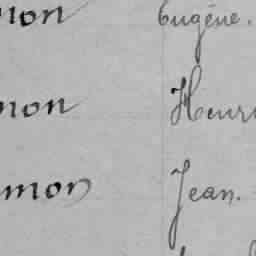 mon Eugène.
mon Henri
mon Jean.